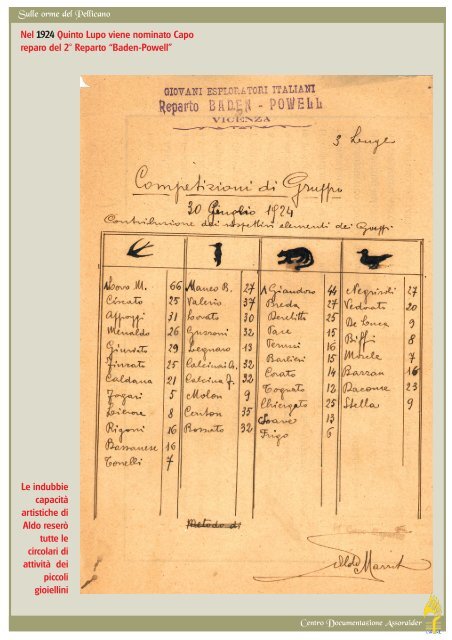 Sulle orme del Pellicano
Nel 1924 Quinto Lupo viene nominato Capo
reparo del 2° Reparto “Baden-Powell”
GIOVANI ESPLORATORI ITALIANI
Reparto BADEN - POWELL
VICENZA
Competizioni di Gruppo
1924
Contribuzione dei rispettivi elementi dei Gruppi
66 Maneo B. 27 44 27
Circato 25 Valerio 37 Breda 27 Vedovato 20
31 Lovato 30 25 De Luca 9
Menaldo 26 Gussoni 32 Pace 15 Biffi 8
29 Legnaro 13 16 Miele 7
25 Calcina G. 32 Barbieri 15 Barzan 16
Caldana 21 Calcina J. 32 Corato 14 23
Fogari 5 Molon 9 Tognato 12 Stella 9
8 Centon 35 Chiergato 25
Rigoni 16 Bossato 32 Soave 13
Bassanese 16 Frigo 6
Tonelli 7
Metodo di
Le indubbie
capacità
artistiche di
Aldo reserò
tutte le
circolari di
attività dei
piccoli
gioiellini
Aldo
Centro Documentazione Assoraider